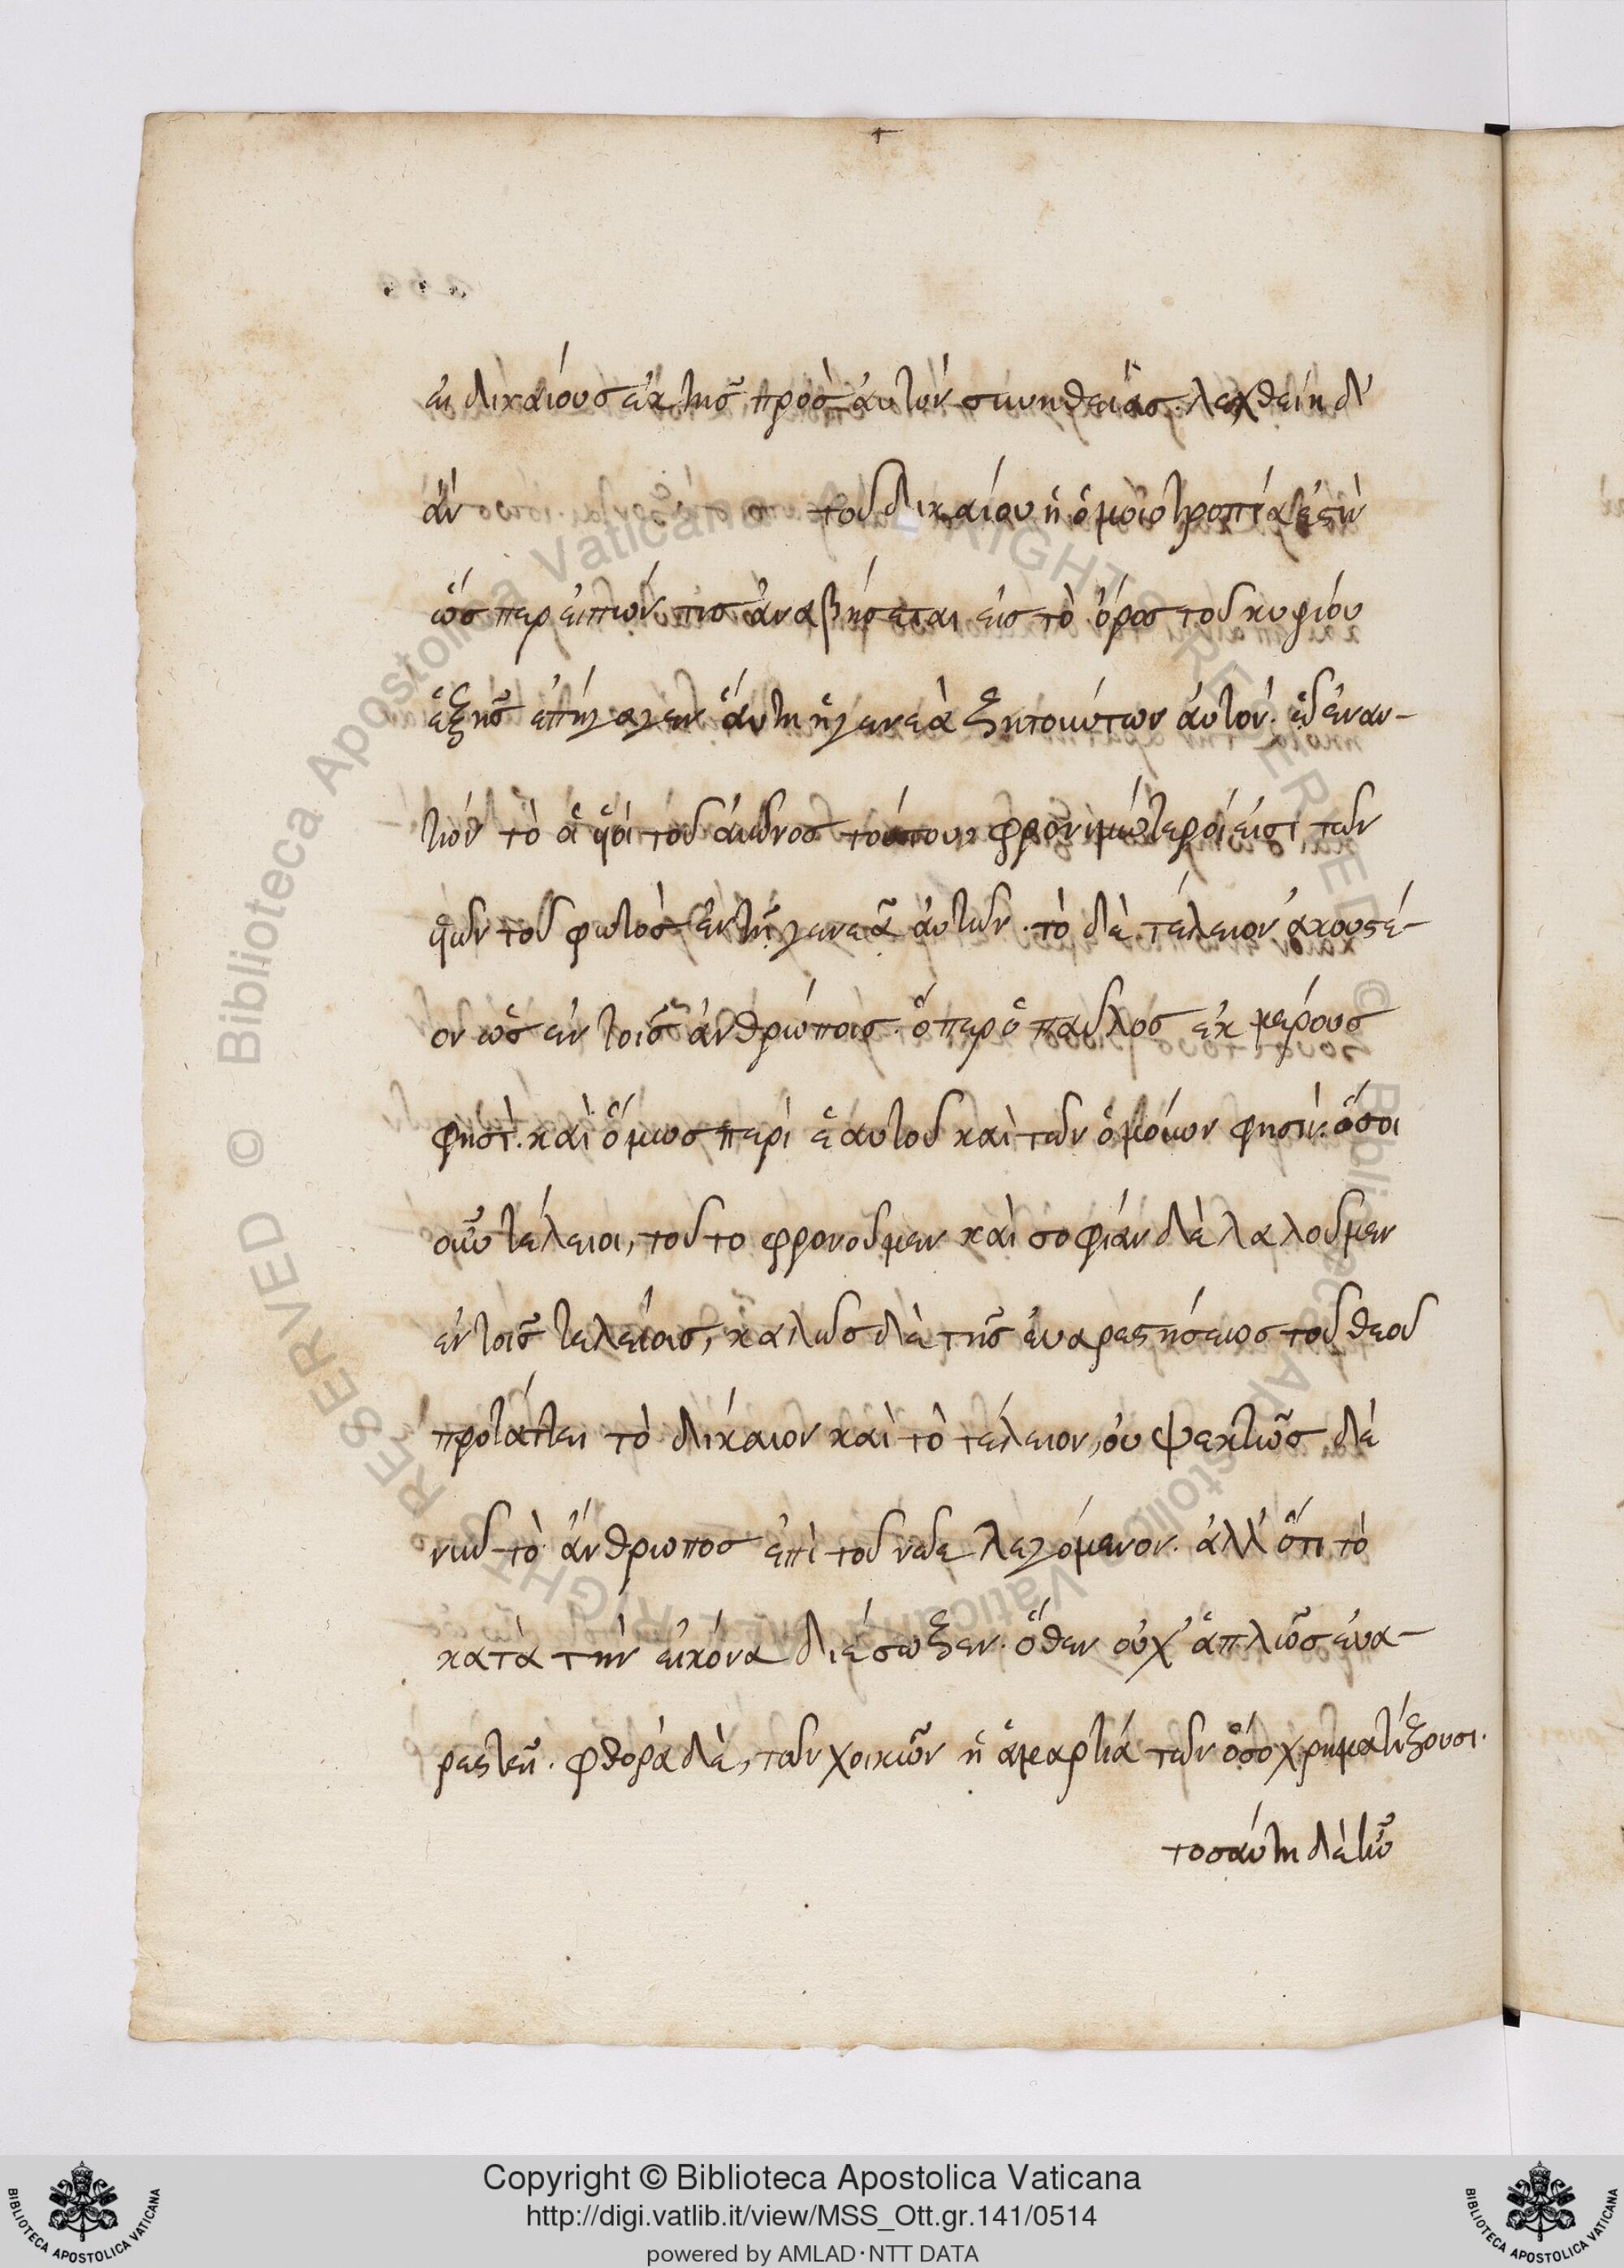 ει δικαίους ἐκ τῆς πρὸς αὐτὸν συνηθείας. λεχθείη δ'
ἀν τοῦ δικαίου ἡ ὁμοιοτροπία
ὥσπερ εἰπών τις ἀναβήσεται εἰς τὸ ὄρος τοῦ κυρίου
ἑξῆς ἐπήγαγεν ἅυτη ἡ γενεὰ ζητούντων αὐτόν. ἐναν-
τιόν τὸ τοῦ αἰῶνος τούτου φρονιμώτεροί εἰσι τῶν
τοῦ φωτὸς ἐν τῇ γενεᾷ αὐτῶν. τὸ δὲ τέλειον ἀκουστέ-
ον ὡς ἐν τοῖς ἀνθρώποις. ὅπερ ὁ παῦλος ἐκ μέρους
φησὶ. καὶ ὅμως περὶ ἑαυτοῦ καὶ τῶν ὁμοίων φησίν. ὅσοι
οὖν τέλειοι, τοῦτο φρονοῦμεν καὶ σοφίαν δὲ λαλοῦμεν
ἐν τοῖς τελείοις, καλῶς δὲ τῆς εὐαρεστήσεως τοῦ θεοῦ
προτάττει τὸ δίκαιον καὶ τὸ τέλειον, οὐ ψεκτῶς δὲ
νῦν τὸ ἄνθρωπος ἐπὶ τοῦ νῶε λεγόμενον. ἀλλ' ὅτι τὸ
κατὰ τὴν εἰκόνα διέσωζεν. ὅθεν οὐχ' ἁπλῶς εὐα-
ρεστεῖ. φθορὰ δὲ, τῶν χοικῶν ἡ ἁμαρτία τῶν χρηματίζουσι.
τοσαύτη δὲ ἦν
Copyright © Biblioteca Apostolica Vaticana
http://digi.vatlib.it/view/MSS_Ott.gr.141/0514
powered by AMLAD·NTT DATA
BIBLIOTECA APOSTOLICA VATICANA
BIBLIOTECA APOSTOLICA VATICANA